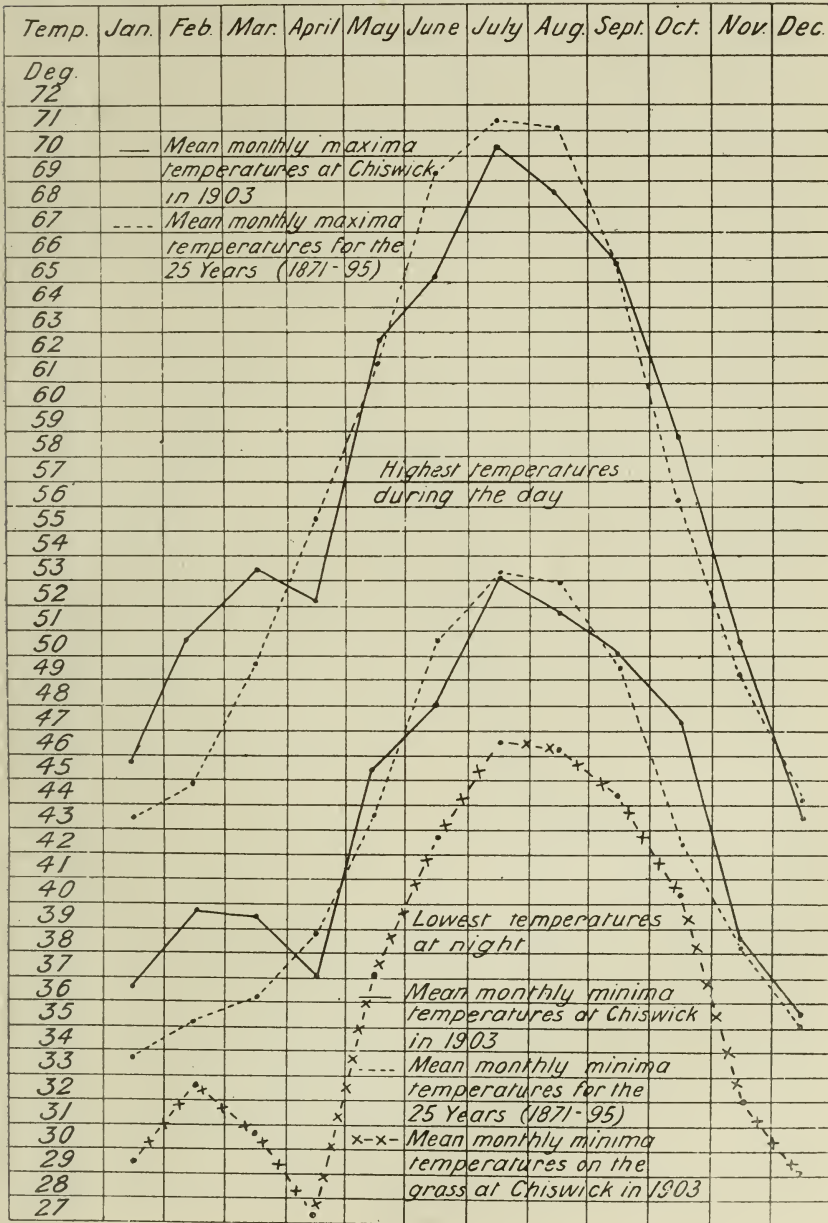 Temp. Jan. Feb. Mar. April May June July Aug. Sept. Oct. Nov. Dec.
Deg.
72
71
70
69
68
67
66
65
64
63
62
61
60
59
58
57
56
55
54
53
52
51
50
49
48
47
46
45
44
43
42
41
40
39
38
37
36
35
34
33
32
31
30
29
28
27
Mean monthly maxima
temperatures at Chiswick
in 1903
Mean monthly maxima
temperatures for the
25 Years (1871-95)
Highest temperatures
during the day
Lowest temperatures
at night
Mean monthly minima
temperatures at Chiswick
in 1903
Mean monthly minima
temperatures for the
25 Years (1871-95)
x-x- Mean monthly minima
temperatures on the
grass at Chiswick in 1903